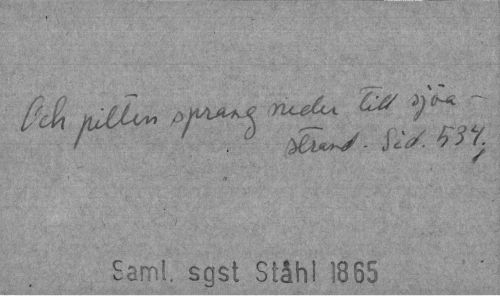 Och pilten sprang neder till sjöa-
strand. Sid. 534.
Saml. sgst Ståhl 1865